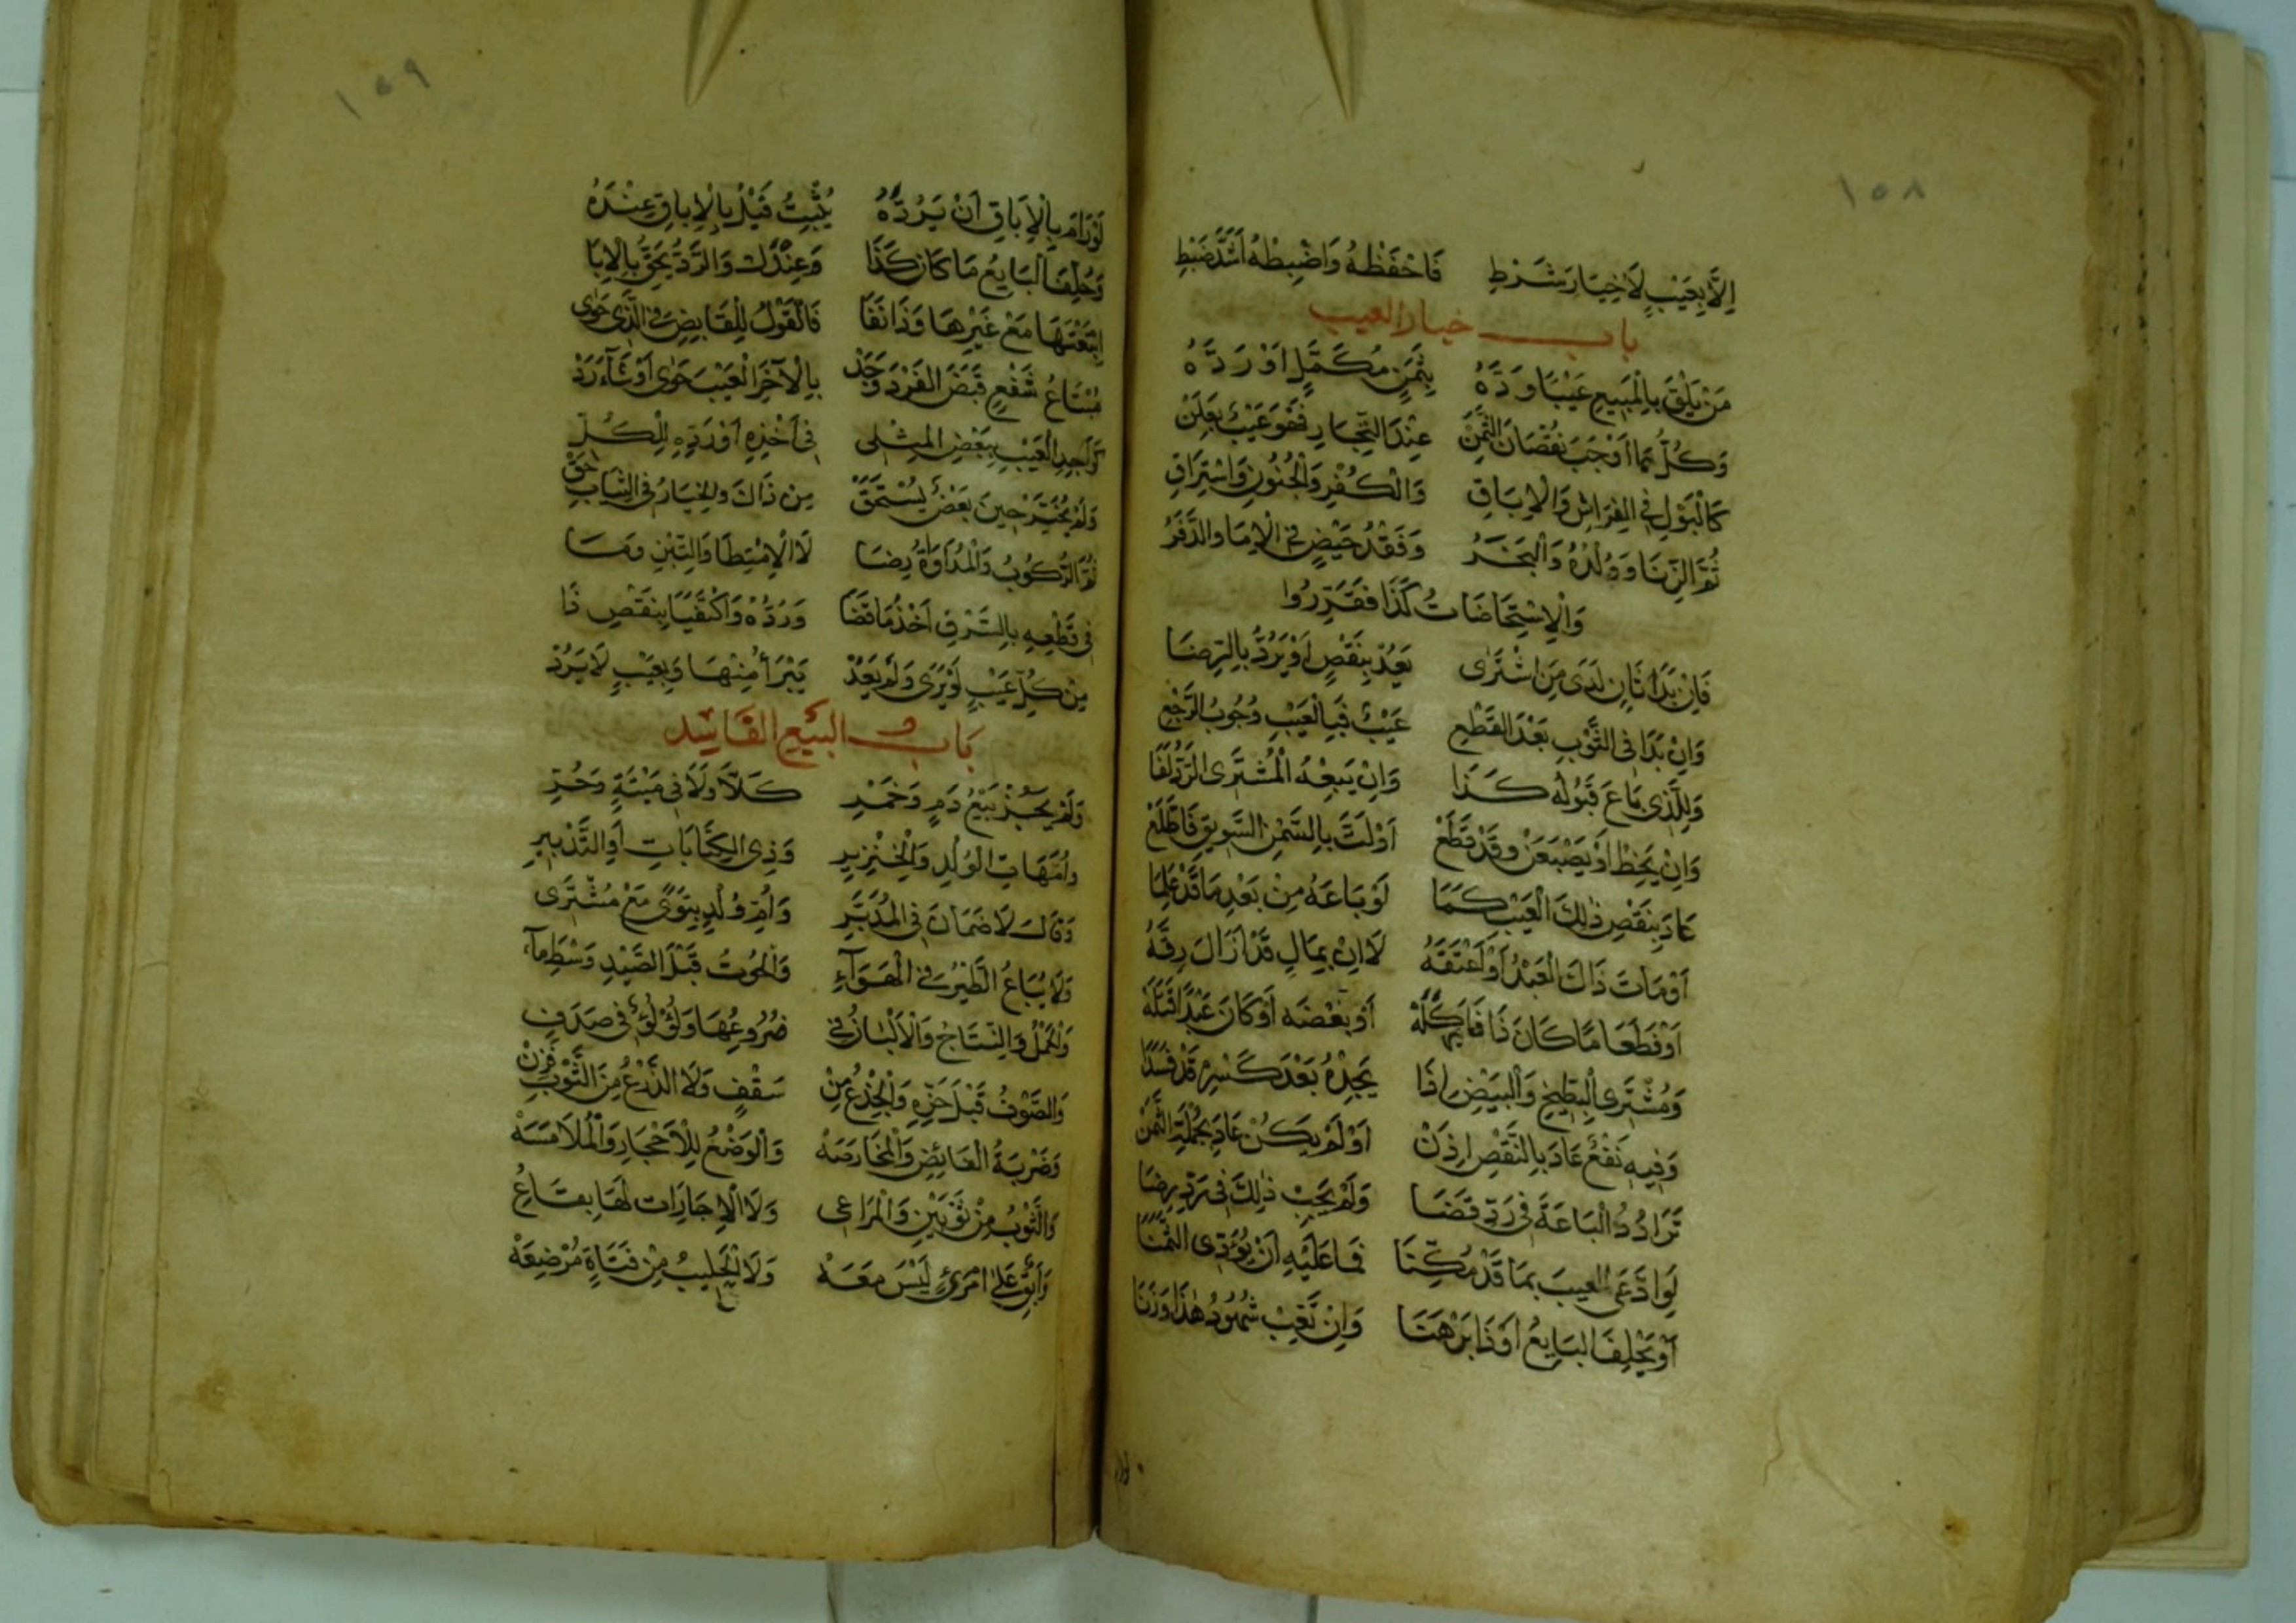 ١٥٨
اِلَّا بِعَيْبٍ لَا خِيَارَ شَرْطِ فَاحْفَظْهُ وَاضْبِطْهُ اَشَدَّ ضَبْطِ
باب خيار العيب
مَنْ يَلْقَ بِالْمَبِيعِ عَيْبًا وَدَّهُ بِثَمَنٍ مُكَمَّلٍ اَوْ رَدَّهُ
وَكُلُّ مَا اَوْجَبَ نُقْصَانَ الثَّمَنْ عِنْدَ التِّجَارِ فَهْوَ عَيْبٌ
كَالْبَوْلِ فِي الْفِرَاشِ وَالْاِبَاقِ وَالْكُفْرِ وَالْجُنُونِ وَاسْتِرَاقِ
ثُمَّ الزِّنَا وَوُلْدُهُ وَالْبَخَرُ وَفَقْدُ حَيْضٍ فِي الْاِمَا وَالدَّفَرُ
وَالْاِسْتِحَاضَاتُ كَذَا فَقَرِّرُوا
فَاِنْ بَدَا ثَانٍ لَدَى مَنِ اشْتَرٰى يَعُدْ بِنَقْصٍ اَوْ يَرُدُّ بِالرِّضَا
وَاِنْ بَدَا فِي الثَّوْبِ بَعْدَ الْقَطْعِ عَيْبٌ فَبِالْعَيْبِ وُجُوبُ الرَّجْعِ
وَلِلَّذِي بَاعَ قَبُولُهُ كَذَا وَاِنْ يَبِعْهُ الْمُشْتَرِي الرَّدُّ لَغَا
وَاِنْ يَخِطْ اَوْ يَصْبَغَنْ وَقَدْ قَطَعْ اَوْ لَتَّ بِالسَّمْنِ السَّوِيقَ فَاطَّلَعْ
عَادَ بِنَقْصِ ذٰلِكَ الْعَيْبِ كَمَا لَوْ بَاعَهُ مِنْ بَعْدِ مَا قَدْ عَلِمَا
اَوْ مَاتَ ذَاكَ الْعَبْدُ اَوْ اَعْتَقَهُ لَا اِنْ بِمَالٍ قَدْ اَزَالَ رِقَّهُ
اَوْ طَعَامًا كَانَ ذَا اَوْ بَعْضَهُ اَوْ كَانَ عَبْدًا قَتَلَهْ
وَمُشْتَرِي الْبِطِّيخِ وَالْبَيْضِ اِذَا يَجِدْهُ بَعْدَ كَسْرِهِ قَدْ فَسَدَا
وَفِيهِ نَفْعٌ عَادَ بِالنَّقْصِ اِذَنْ اَوْ لَمْ يَكُنْ عَادَ بِجُمْلَةِ الثَّمَنْ
تَرَادُدُ الْبَاعَةِ فِي رَدٍّ قَضَا وَلَمْ يَجِبْ ذٰلِكَ فِي رَدٍّ رِضَا
لَوِ ادَّعَى الْعَيْبَ بِمَا قَدْ مُكِّنَا فَمَا عَلَيْهِ اَنْ يُؤَدِّي الثَّمَنَا
اَوْ يَحْلِفَ الْبَايِعُ اَوْ ذَا بَرْهَنَا وَاِنْ تَغِبْ شُهُودُ هٰذَا وَزَنَا
١٥٩
لَوْ رَامَ بِالْاِبَاقِ اَنْ يَرُدَّهُ يُثْبِتُ قَبْلُ بِالْاِبَاقِ عِنْدَهُ
وَحُلِّفَ الْبَايِعُ مَا كَانَ كَذَا وَعِنْدَكَ وَالرَّدُّ بِحَقٍّ بِالْاِبَا
ابْتَعْتَهَا مَعْ غَيْرِهَا وَذَا نَفَا فَالْقَوْلُ لِلْقَابِضِ فِي الَّذِي حَوٰى
مُبْتَاعُ شَفْعٍ قَبَضَ الْفَرْدَ وَجَدْ بِالْآخَرِ الْعَيْبَ حَوٰى اَوْ شَآءَ رَدْ
كَوَاجِدِ الْعَيْبِ بِبَعْضِ الْمِثْلِي فِي اَخْذِهِ اَوْ رَدِّهِ لِلْكُلِّ
وَلَمْ يُخَيَّرْ حِينَ بَعْضٌ يُسْتَحَقّْ مِنْ ذَاكَ وَالْخِيَارُ فِي الثِّيَابِ حَقّْ
ثُمَّ الرُّكُوبُ وَالْمُدَاوَاةُ رِضَا لَا الْاِمْتِطَا وَالتِّبْنِ
فِي قَطْعِهِ بِالسَّرْقِ اَخْذُ مَا قَضَا وَرَدُّهُ وَاكْتَفَيَا بِنَقْصِ ذَا
مِنْ كُلِّ عَيْبٍ لَوْ بَرِى وَلَمْ يَعُدّْ يَبْرَأُ مِنْهَا وَبِعَيْبٍ لَا يَرُدّْ
بَابُ الْبَيْعِ الْفَاسِد
وَلَمْ يَجُزْ بَيْعُ دَمٍ وَخَمْرِ كَلَّا وَلَا فِي مَيْتَةٍ وَحُرِّ
وَاُمَّهَاتِ الْوُلْدِ وَالْخِنْزِيرِ وَذِي الْكِتَابَاتِ اَوِ التَّدْبِيرِ
وَقَالَ لَا ضَمَانَ فِي الْمُدَبَّرِ وَاُمِّ وُلْدٍ بِتَوًى مَعْ مُشْتَرِى
وَلَا يُبَاعُ الطَّيْرُ فِي الْهَوَآءِ وَالْحُوتُ قَبْلَ الصَّيْدِ وَسْطَ مَآءِ
وَالْحَمْلُ وَالنِّتَاجُ وَالْاَلْبَانُ فِي ضُرُوعِهَا وَلُؤْلُؤٌ فِي صَدَفِ
وَالصُّوفُ قَبْلَ جَزِّهِ وَالْجِذْعُ مِنْ سَقْفٍ وَلَا الذَّرْعُ مِنَ الثَّوْبِ
وَضَرْبَةُ الْغَائِصِ وَالْوَضْعُ لِلْاَحْجَارِ وَالْمُلَامَسَهْ
وَالثَّوْبُ مِنْ ثَوْبَيْنِ وَالْمَرَاعِى وَلَا الْاِجَارَات لَهَا
وَآبِقٌ عَلَى امْرِئٍ لَيْسَ مَعَهْ وَلَا الْحَلِيبُ مِنْ فَتَاةٍ مُرْضِعَهْ